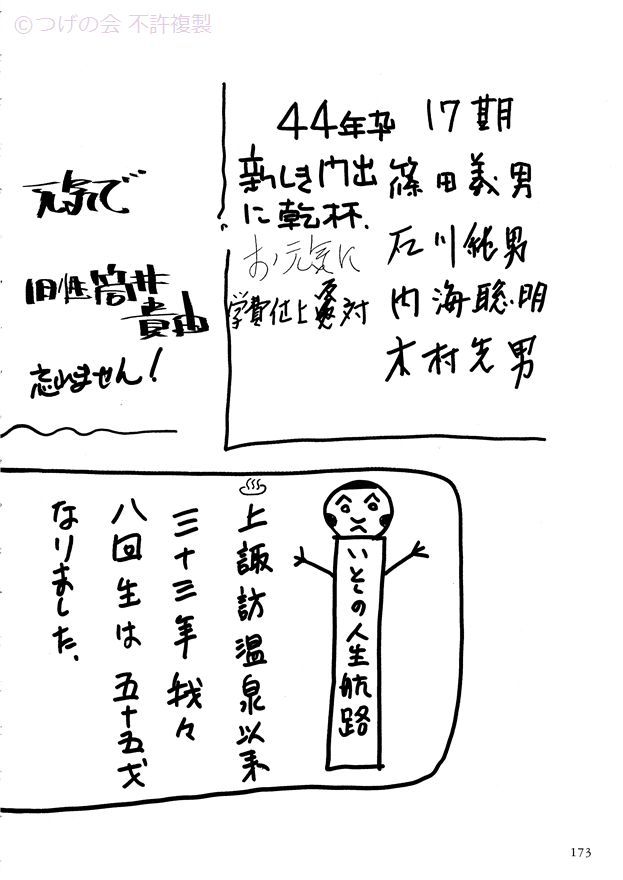 ©つげの会 不許複製
44年卒 17期
新しき門出
に乾杯.
お元気に
学費仕上 対
篠田義男
石川純男
内海聡明
木村先男
元気で
旧性筒井
貴由
忘れません!
いとこの人生航路
♨上諏訪温泉以来
三十三年我々
八回生は五十五才
なりました.
173